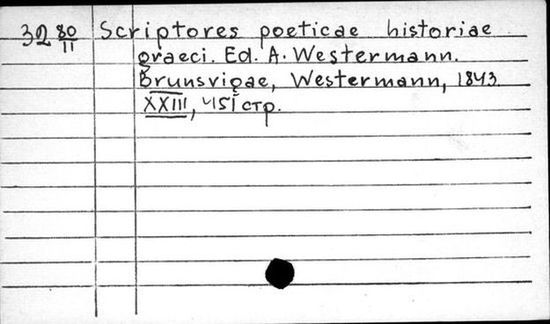 32 80/11 Scriptores poeticae historiae
graeci. Ed. A. Westermann.
Brunsvigae, Westermann, 1843.
XXIII, 451 стр.